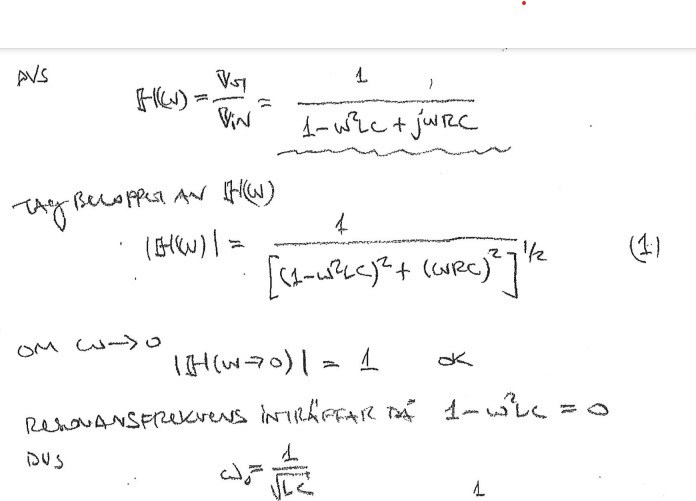 DVS
H(ω) = V_UT / V_IN = 1 / (1-ω²LC + jωRC) ,
TAG BELOPPET AV H(ω)
|H(ω)| = 1 / [(1-ω²LC)² + (ωRC)²]^1/2 (1)
OM ω→0
|H(ω→0)| = 1 OK
RESONANSFREKVENS INTRÄFFAR DÅ 1-ω²LC = 0
DVS
ω₀ = 1/√LC
1